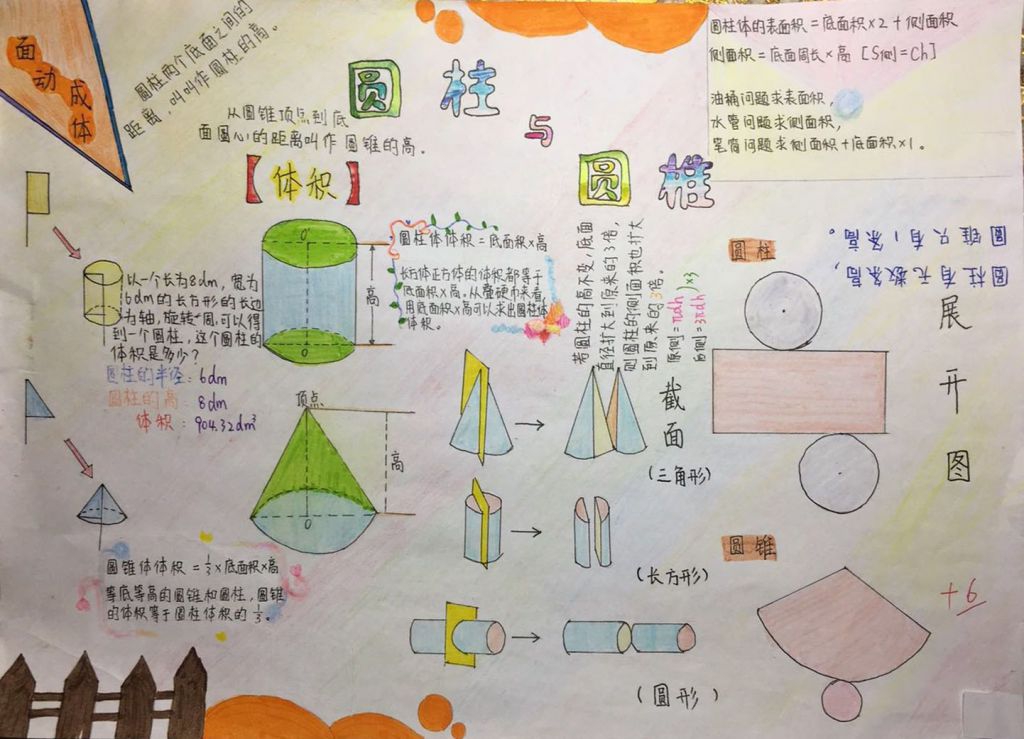 面
动
成
体
圆柱两个底面之间的
距离，叫叫作圆柱的高。
圆柱
与
圆椎
从圆锥顶点到底
面圆心的距离叫作圆锥的高。
【体积】
圆柱体的表面积=底面积×2+侧面积
侧面积=底面周长×高 [S侧=Ch]
油桶问题求表面积，
水管问题求侧面积，
笔筒问题求侧面积+底面积×1。
以一个长为8dm，宽为
6dm的长方形的长边
为轴，旋转一周，可以得
到一个圆柱，这个圆柱的
体积是多少？
圆柱的半径：6dm
圆柱的高：8dm
体积：904.32dm³
O'
高
O
圆柱体体积=底面积×高
长方体正方体的体积都等于
底面积×高。从叠硬币来看，
用底面积×高可以求出圆柱体
体积。
若圆柱的高不变，底面
直径扩大到原来的3倍，
则圆柱的侧面积也扩大
到原来的3倍。
原侧=πdh
后侧=3πdh
×3
圆柱有无数条高，
圆锥只有1条高。
顶点
高
O
圆锥体体积=1/3×底面积×高
等底等高的圆锥和圆柱，圆锥
的体积等于圆柱体积的1/3。
截面
(三角形)
(长方形)
(圆形)
展开图
圆柱
圆锥
+6